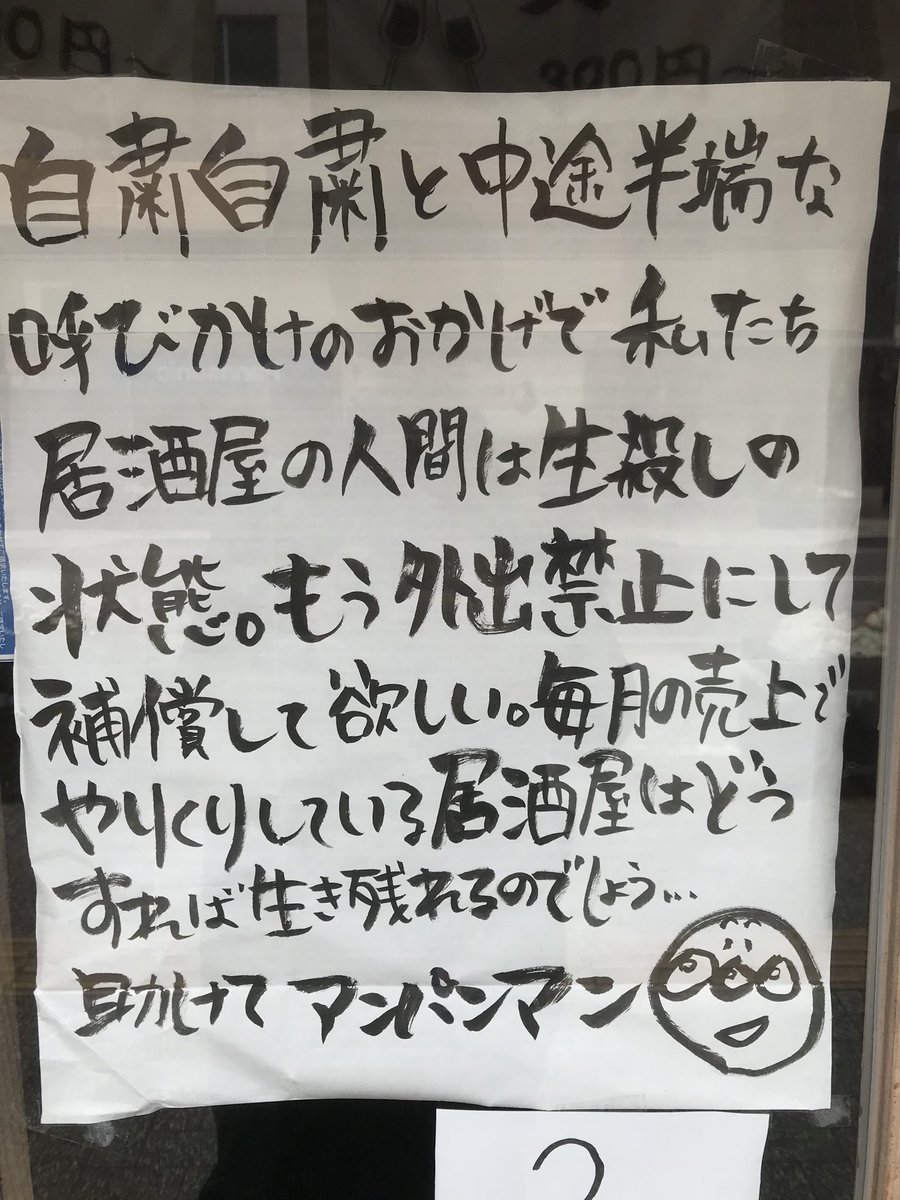 円〜
300円〜
自粛自粛と中途半端な
呼びかけのおかげで 私たち
居酒屋の人間は生殺しの
状態。もう外出禁止にして
補償して欲しい。毎月の売上で
やりくりしている居酒屋はどう
すれば生き残れるのでしょう...
助けて アンパンマン